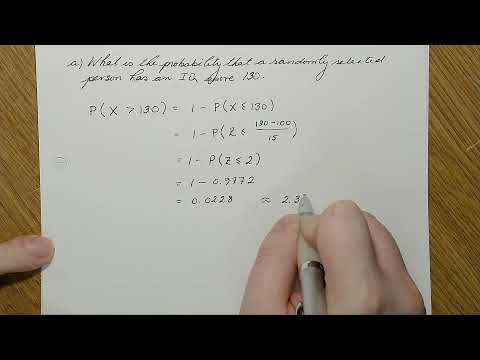 a) What is the probability that a randomly selected
person has an IQ above 130.
P(X > 130) = 1 - P(X ≤ 130)
= 1 - P(Z ≤ (130-100)/15)
= 1 - P(Z ≤ 2)
= 1 - 0.9772
= 0.0228 ≈ 2.3